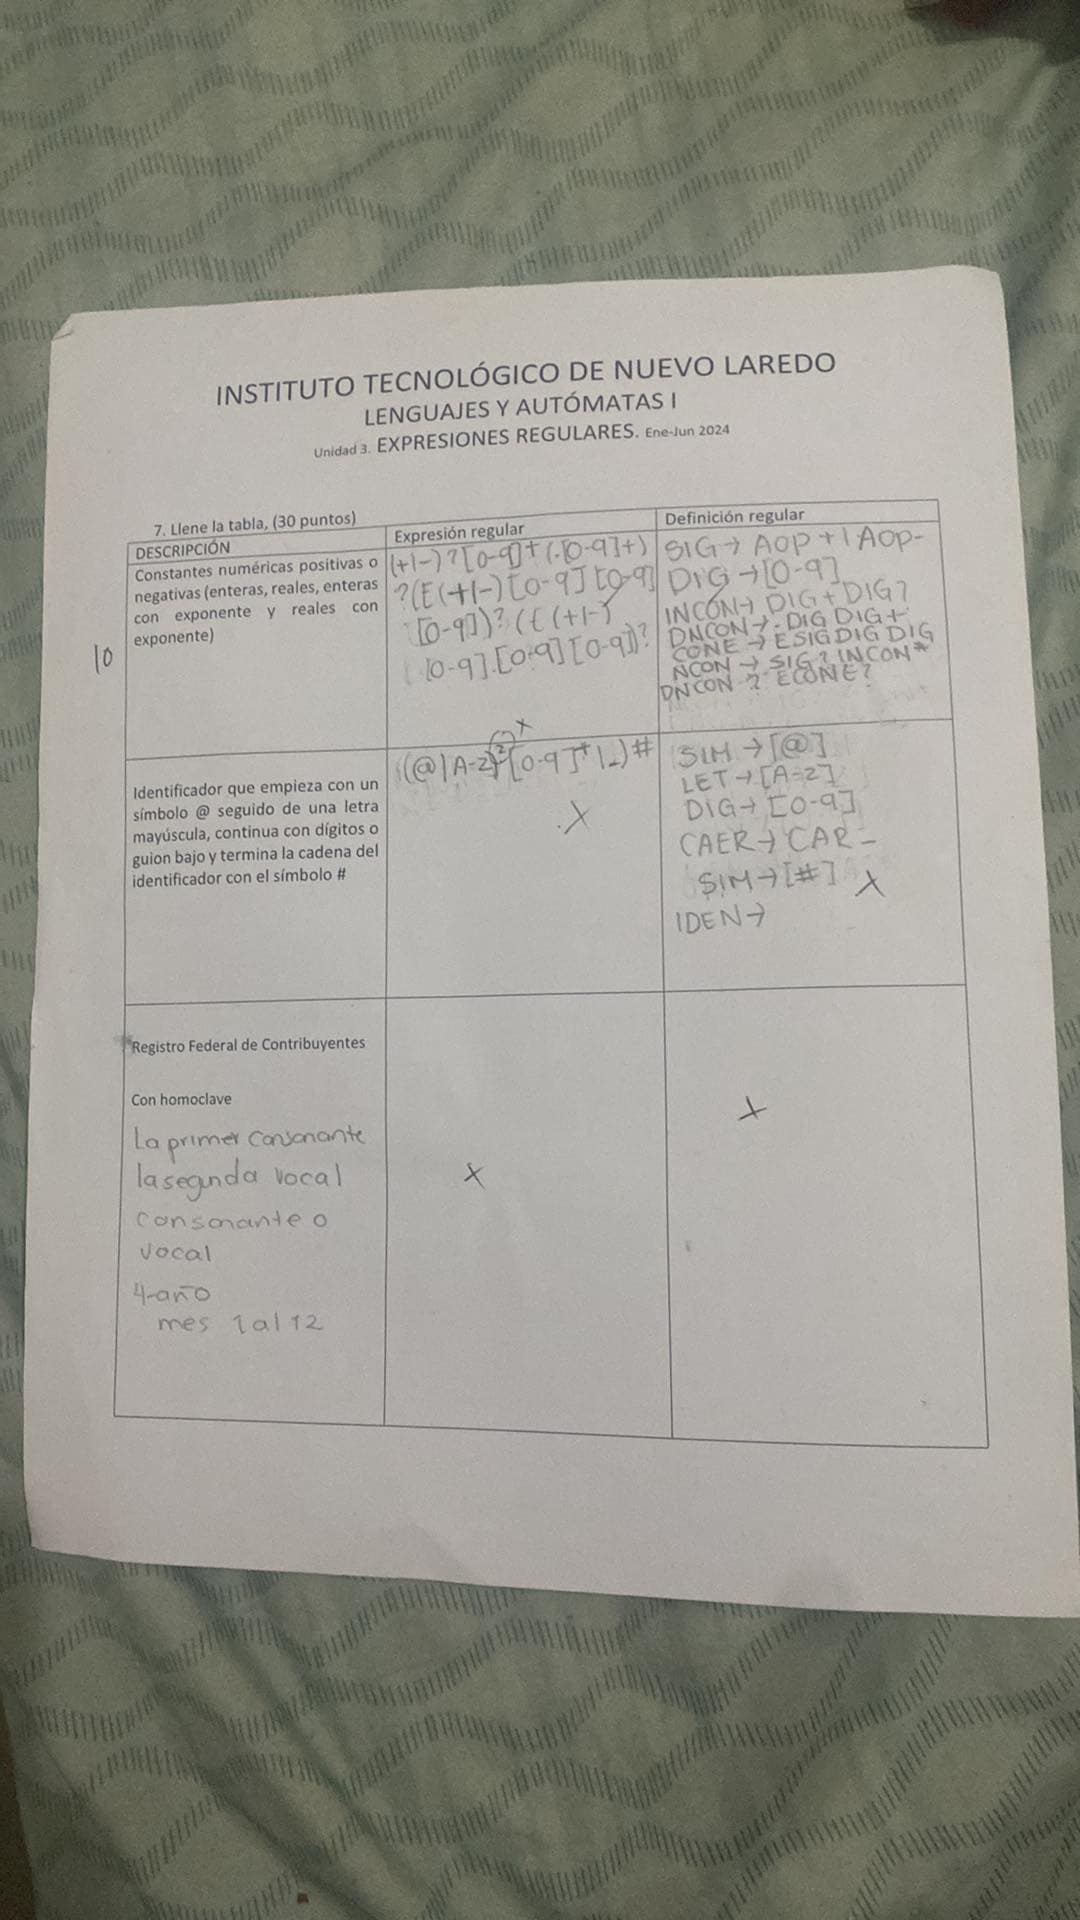 INSTITUTO TECNOLÓGICO DE NUEVO LAREDO
LENGUAJES Y AUTÓMATAS I
Unidad 3. EXPRESIONES REGULARES. Ene-Jun 2024
7. Llene la tabla, (30 puntos)
DESCRIPCIÓN
Expresión regular
Definición regular
Constantes numéricas positivas o
negativas (enteras, reales, enteras
con exponente y reales con
exponente)
10
(+|-)?[0-9]+(.[0-9]+)
?(E(+|-)[0-9][0-9]
[0-9])?(E(+|-)
[0-9].[0-9][0-9])?
SIG→ AOP+|AOP-
DIG→[0-9]
INCON→ DIG+DIG?
DNCON→.DIG DIG+
CONE→ESIGDIG DIG
NCON→SIG? INCON*
DNCON? ECONE?
Identificador que empieza con un
símbolo @ seguido de una letra
mayúscula, continua con dígitos o
guion bajo y termina la cadena del
identificador con el símbolo #
(@|A-Z)?[0-9]+|_)#
X
SIM→[@]
LET→[A-Z]
DIG→[0-9]
CAER→CAR_
SIM→[#] X
IDEN→
Registro Federal de Contribuyentes
Con homoclave
La primer consonante
la segunda vocal
consonante o
vocal
4-año
mes 1 al 12
X
X